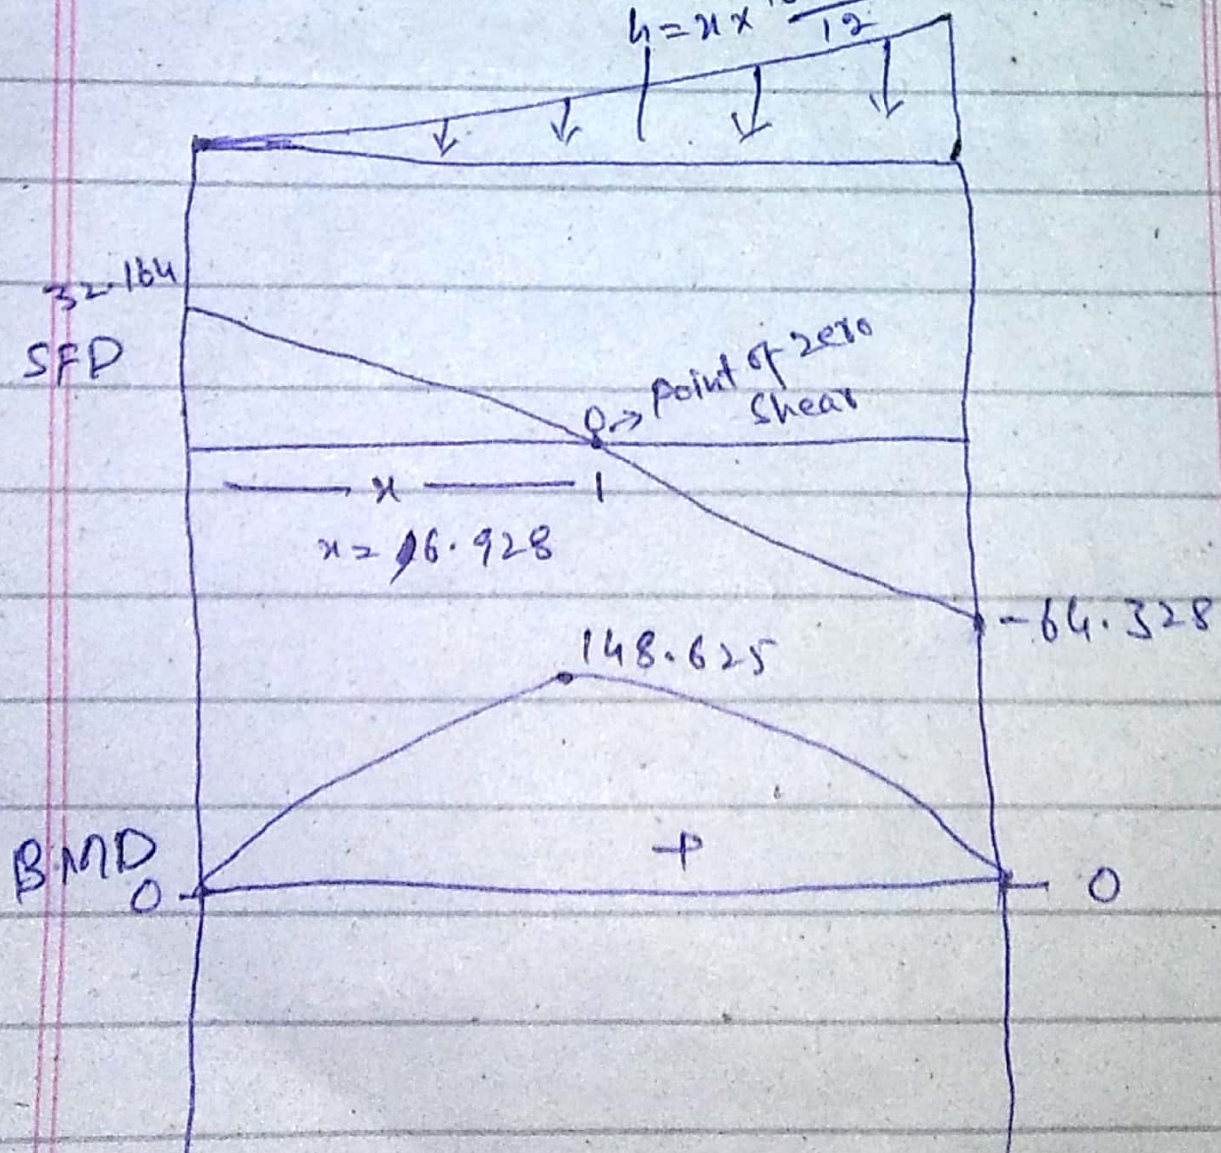 h = x × 12
32.164
SFD
0 → point of zero
shear
x
x = 6.928
-64.328
148.625
+
BMD
0
0